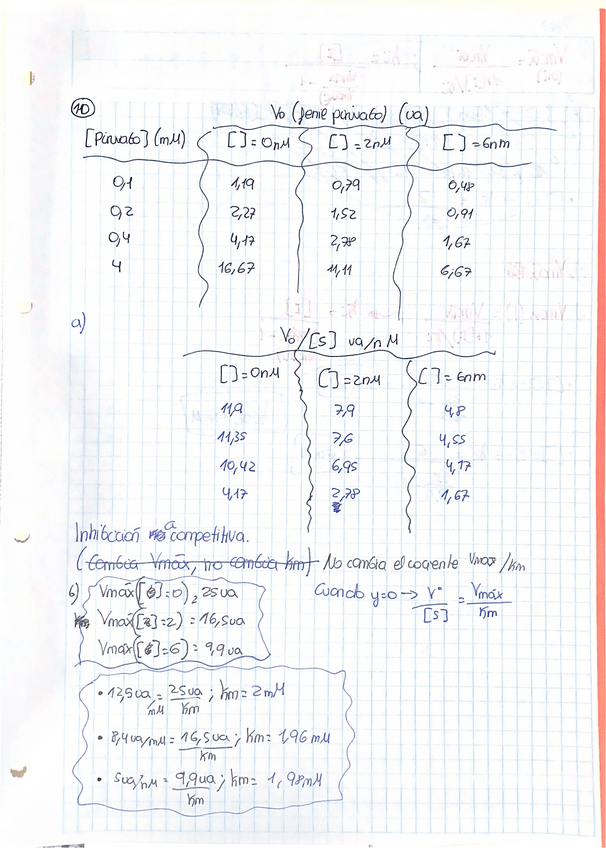 10
Vo (fenil piruvato) (ua)
[Piruvato] (mM) [ ]=0nM [ ]=2nM [ ]=6nm
0,1 1,19 0,79 0,48
0,2 2,27 1,52 0,91
0,4 4,17 2,78 1,67
4 16,67 11,11 6,67
a)
Vo/[S] ua/nM
[ ]=0nM [ ]=2nM [ ]=6nm
11,9 7,9 4,8
11,35 7,6 4,55
10,42 6,95 4,17
4,17 2,78 1,67
Inhibición a competitiva.
(Cambia Vmáx, no cambia km) No cambia el cociente Vmax/km
b) Vmáx([ ]=0), 25ua Cuando y=0 → V°/[S] = Vmáx/Km
Vmáx([ ]=2) = 16,5ua
Vmáx([ ]=6) = 9,9ua
• 12,5ua/mM = 25ua/Km ; Km= 2mM
• 8,4ua/mM = 16,5ua/Km ; Km= 1,96mM
• 5ua/nM = 9,9ua/Km ; Km= 1,98mM